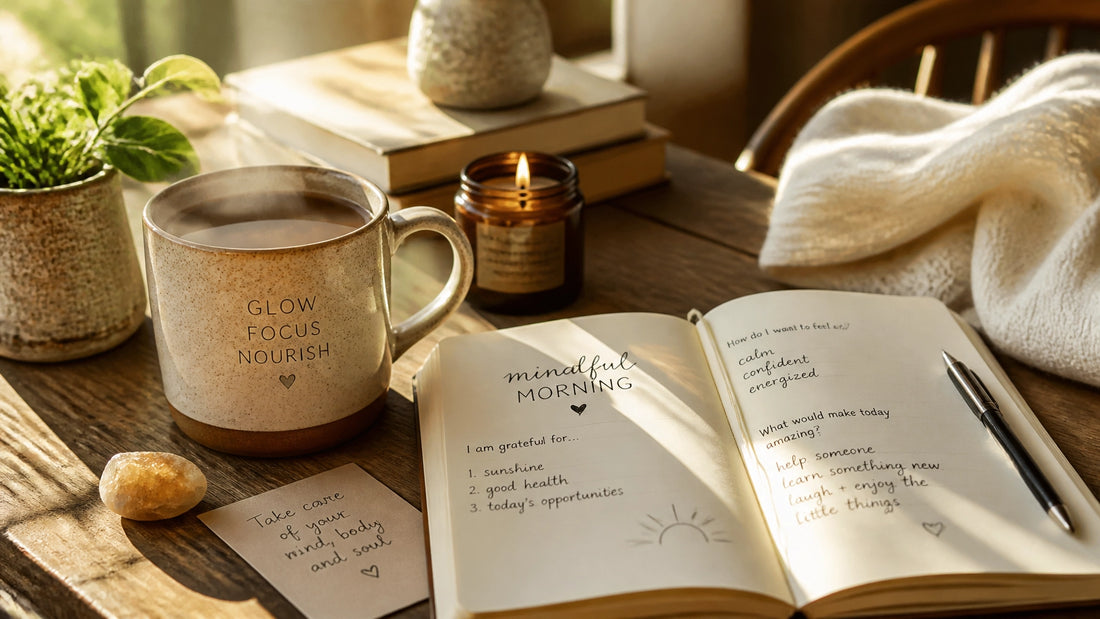 GLOW
FOCUS
NOURISH
Take care
of your
mind, body
and soul
mindful
MORNING
I am grateful for...
1. sunshine
2. good health
3. today's opportunities
How do I want to feel
calm
confident
energized
What would make today
amazing?
help someone
learn something new
laugh + enjoy the
little things